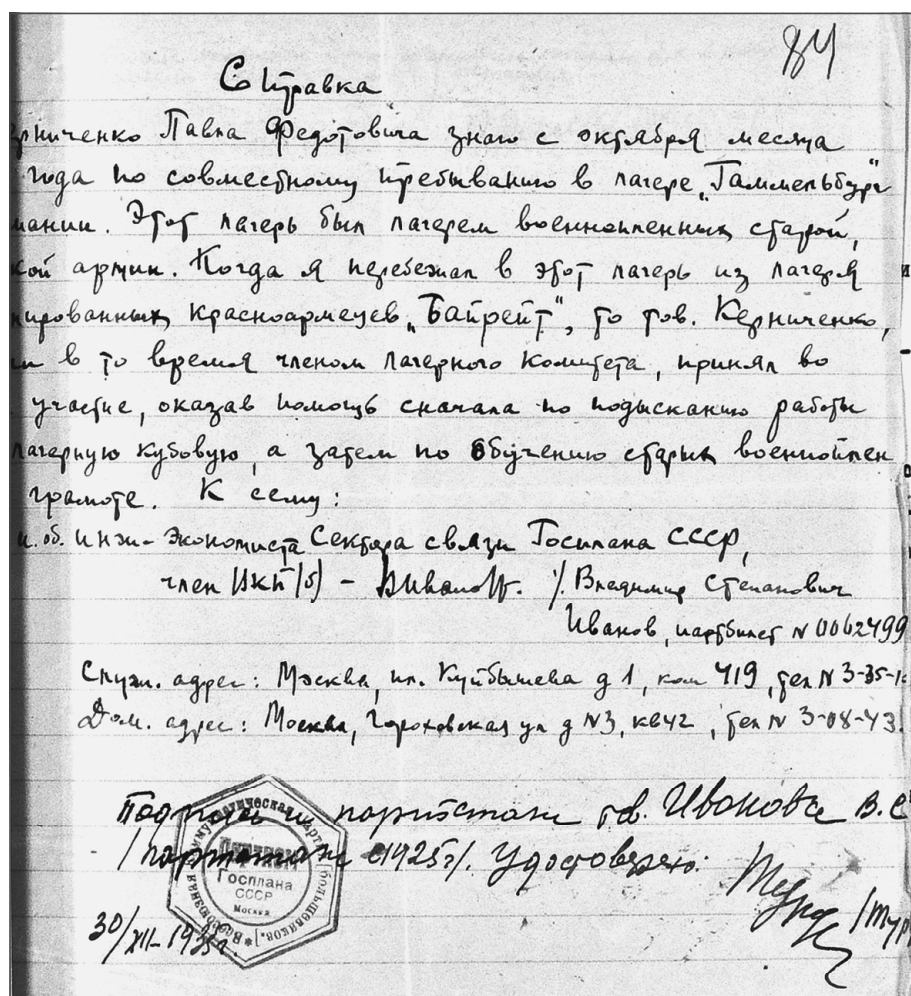 84
Справка
рниченко Павла Федотовича знаю с октября месяца
года по совместному пребыванию в лагере „Гаммельбург
мании. Этот лагерь был лагерем военнопленных старой,
кой армии. Когда я перебежал в этот лагерь из лагеря
нированных красноармейцев „Байрейт“, то тов. Керниченко,
в то время членом лагерного комитета, принял во
участие, оказав помощь сначала по подысканию работы
лагерную кубовую, а затем по обучению старых военноплен
грамоте. К сему:
и. об. инж-экономиста Сектора связи Госплана СССР,
член ВКП(б) – ВИванов. /Владимир Степанович
Иванов, партбилет N 0062499
Служ. адрес: Москва, пл. Куйбышева д 1, ком 419, тел N 3-35-1
Дом. адрес: Москва, Гороховская ул д N3, кв42, тел N 3-08-43.
Подпись и партстаж тов. Иванова В. С
/партстаж с 1925г/. Удостоверяю:
/Тур
30/XII-193 г.
Всесоюзная Коммунистическая партия (большевиков).
Госплана
СССР
Москва